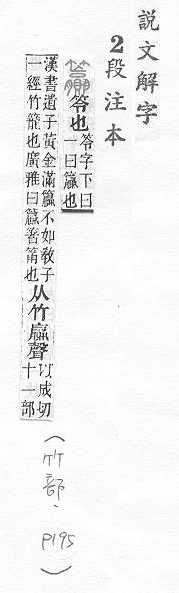 說文解字
2段注本
籯 笭也 笭字下曰
一曰籯也
漢書遺子黃金滿籯不如敎子
一經竹籠也廣雅曰籯箸筩也 从竹贏聲 以成切
十一部
(竹部、P195)